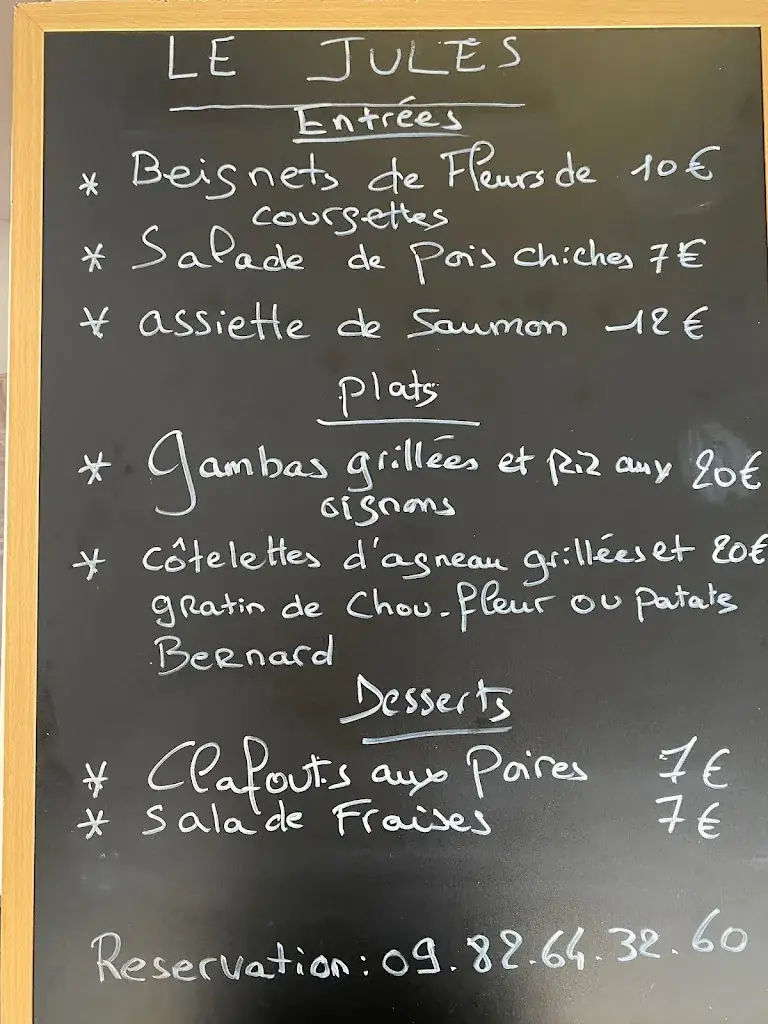 LE JULES
Entrées
* Beignets de Fleurs de 10€
courgettes
* Salade de pois chiches 7€
* assiette de Saumon 12€
plats
* gambas grillées et Riz aux 20€
oignons
* côtelettes d'agneau grillées et 20€
gratin de chou-fleur ou patate
Bernard
Desserts
* Clafoutis aux Poires 7€
* Salade Fraises 7€
Reservation: 09.82.64.32.60